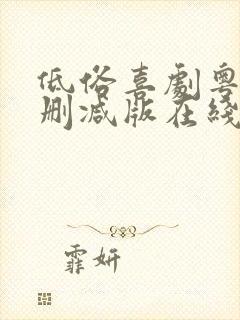 低俗喜劇粵
刪减版在綫
霏妍